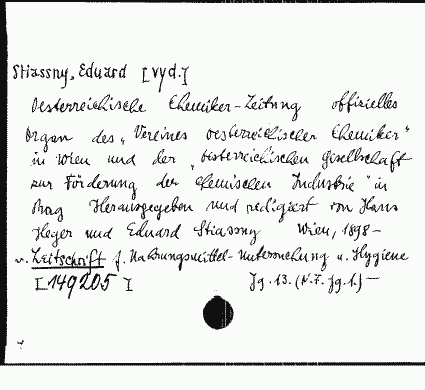 Stiassny, Eduard [vyd.]
Oesterreichische Chemiker-Zeitung offizielles
Organ des „Vereines oesterreichischer Chemiker"
in Wien und der „oesterreichischen Gesellschaft
zur Förderung der chemischen Industrie" in
Prag Herausgegeben und redigiert von Hans
Heger und Eduard Stiassny Wien, 1898-
v. Zeitschrift f. Nahrungsmittel-Untersuchung u. Hygiene
[149205] Jg. 13. (N.F. Jg. 1.) —